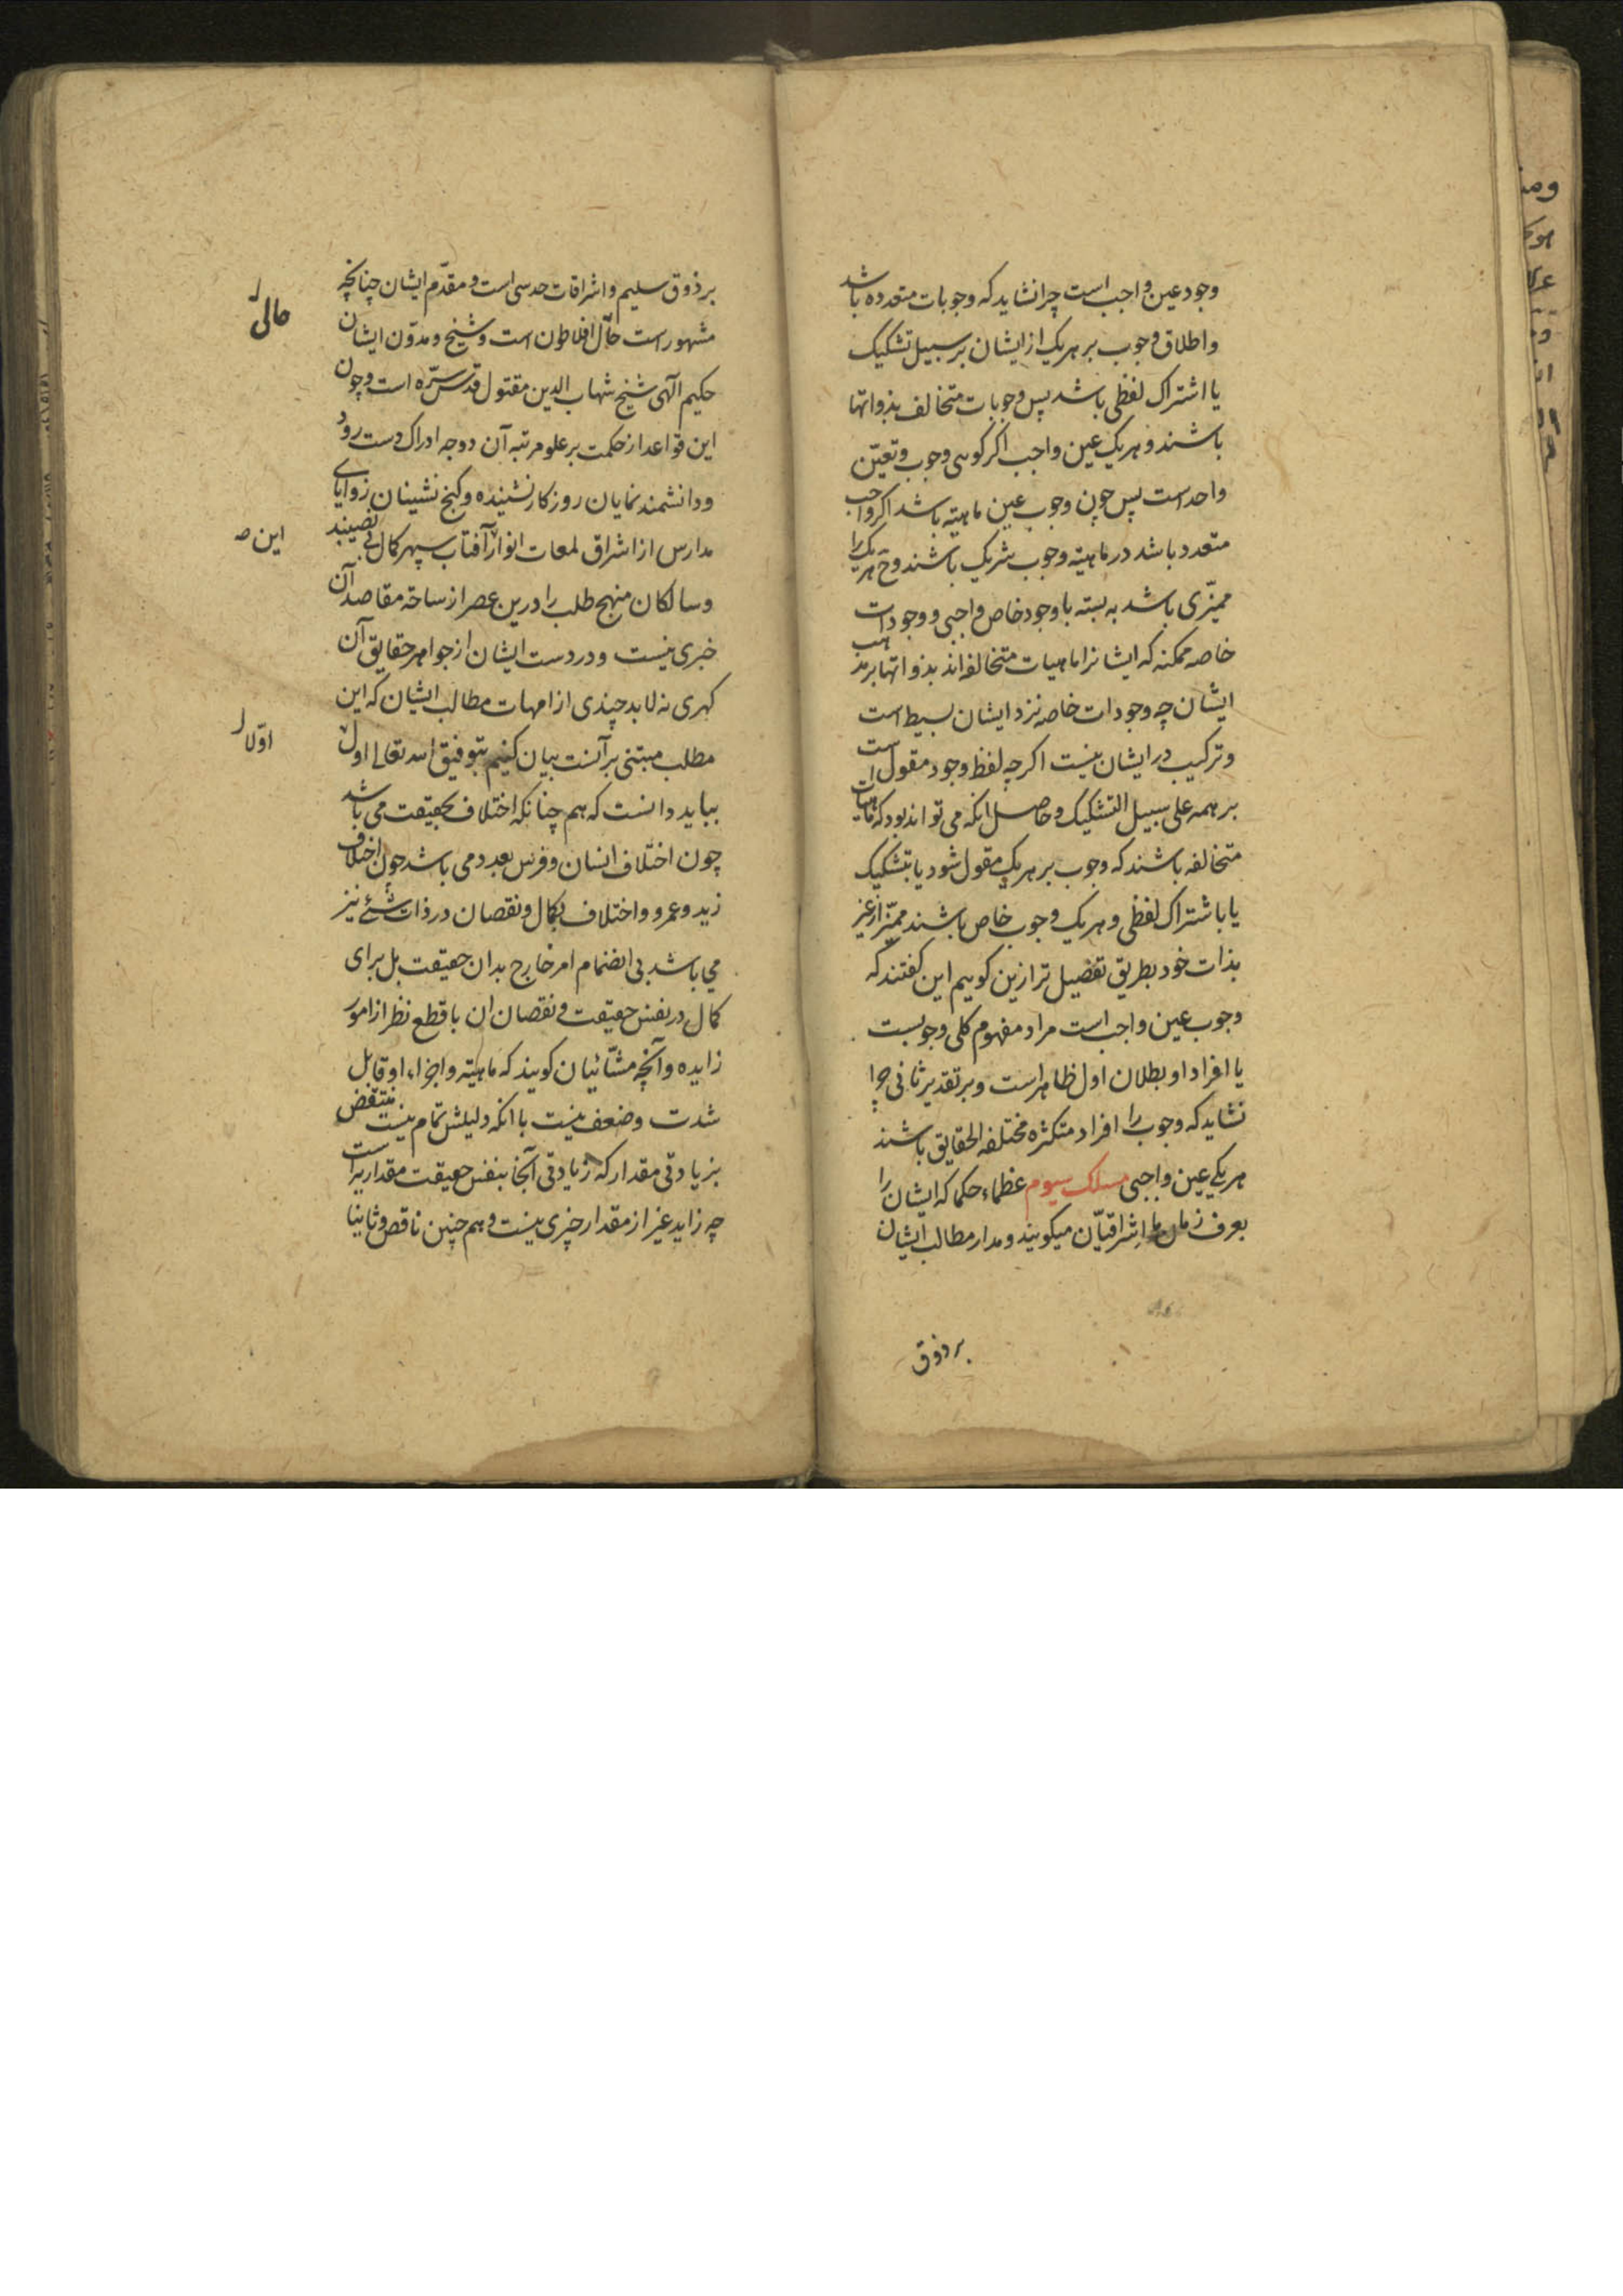 وجود عین واجب است چرا نشاید که وجوبات متعدده باشد
واطلاق وجوب بر هر یک از ایشان بر سبیل تشکیک
یا اشتراک لفظی باشد پس وجوبات متخالف بذواتها
باشند و هر یک عین واجب اکر کویی وجوب و تعیّن
واحد است پس چون وجوب عین ماهیته باشد اکر واجب
متعدد باشد در ماهیته وجوب شریک باشند وح هر یک را
ممیّزی باشد به بسته با وجود خاص واجبی و وجودات
خاصه ممکنه که ایشانرا ماهیات متخالفه اند بذواتها بر مذهب
ایشان چه وجودات خاصه نزد ایشان بسیط است
وترکیب در ایشان نیست اکرچه لفظ وجود مقول است
بر همه علی سبیل التشکیک وحاصل انکه می تواند بود که ماهیات
متخالفه باشند که وجوب بر هر یک مقول شود یا بتشکیک
یا باشتراک لفظی و هر یک وجوب خاص باشند ممیّز از غیر
بذات خود بطریق تفضیل تر ازین کوییم این کفتند که
وجوب عین واجب است مراد مفهوم کلی وجوبست
یا افراد او بطلان اول ظاهر است وبر تقدیر ثانی چرا
نشاید که وجوب را افراد متکثره مختلفه الحقایق باشند
هر یکی عین واجبی مسلک سیوم عظماء حکما که ایشان را
بعرف زمان ما اشراقیّان میکویند ومدار مطالب ایشان
بر ذوق
بر ذوق سلیم واشراقات حدسی است و مقدّم ایشان چنانچه
مشهور است حالّ افلاطون است وشیخ ومدوّن ایشان
حالی
حکیم الهی شیخ شهاب الدین مقتول قدّس سرّه است وچون
این قواعد از حکمت بر علو مرتبه آن دوجه ادراک دست رود
ودانشمند نمایان روزکار نشنیده وکنج نشینان زوایای
مدارس از اشراق لمعات انوار آفتاب سپهر کمال بی نصیبند
این
وسالکان منهج طلب را درین عصر از ساحة مقاصد آن
خبری نیست ودر دست ایشان از جواهر حقایق آن
کهری نه لابد چندی از امهات مطالب ایشان که این
مطلب مبتنی بر آنست بیان کنیم بتوفیق الله تعالی اول
اوّلا
بباید دانست که هم چنانکه اختلاف بحقیقت می باشد
چون اختلاف انسان وفرس بعدد می باشد چون اختلاف
زید وعمرو واختلاف بکمال ونقصان در ذات شئ نیز
می باشد بی انضمام امر خارج بدان حقیقت بل برای
کمال در نفس حقیقت ونقصان ان با قطع نظر از امور
زایده وآنچه مشّائیان کویند که ماهیته واجزاء او قابل
شدت وضعف نیست با انکه دلیلش تمام نیست منتقض
بزیادتی مقدار که زیادتی آنجا بنفس حقیقت مقداریه است
چه زاید غیر از مقدار چیزی نیست وهم چنین ناقص وثانیا